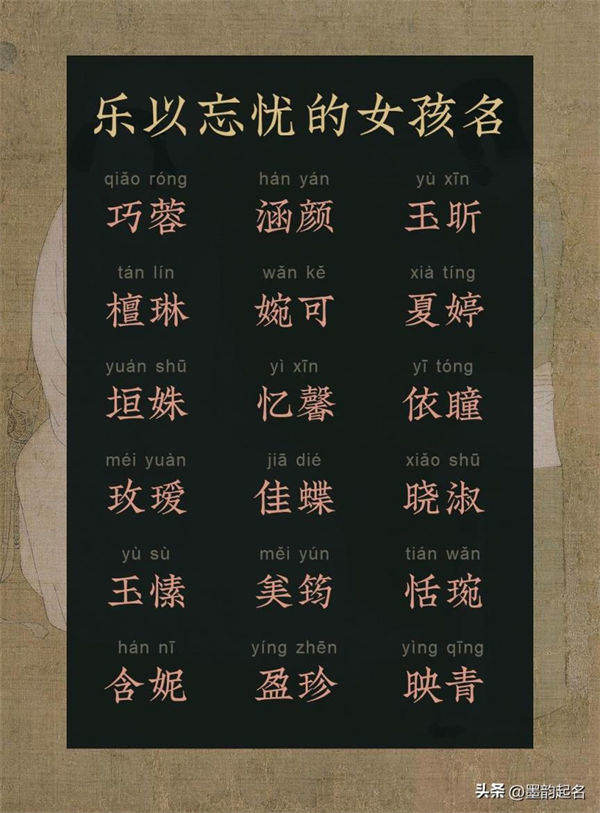 乐以忘忧的女孩名
qiǎo róng hán yán yù xīn
巧蓉 涵颜 玉昕
tán lín wǎn kě xià tíng
檀琳 婉可 夏婷
yuán shū yì xīn yī tóng
垣姝 忆馨 依瞳
méi yuàn jiā dié xiǎo shū
玫瑷 佳蝶 晓淑
yù sù měi yún tián wǎn
玉愫 美筠 恬琬
hán nī yíng zhēn yìng qīng
含妮 盈珍 映青
头条 @墨韵起名